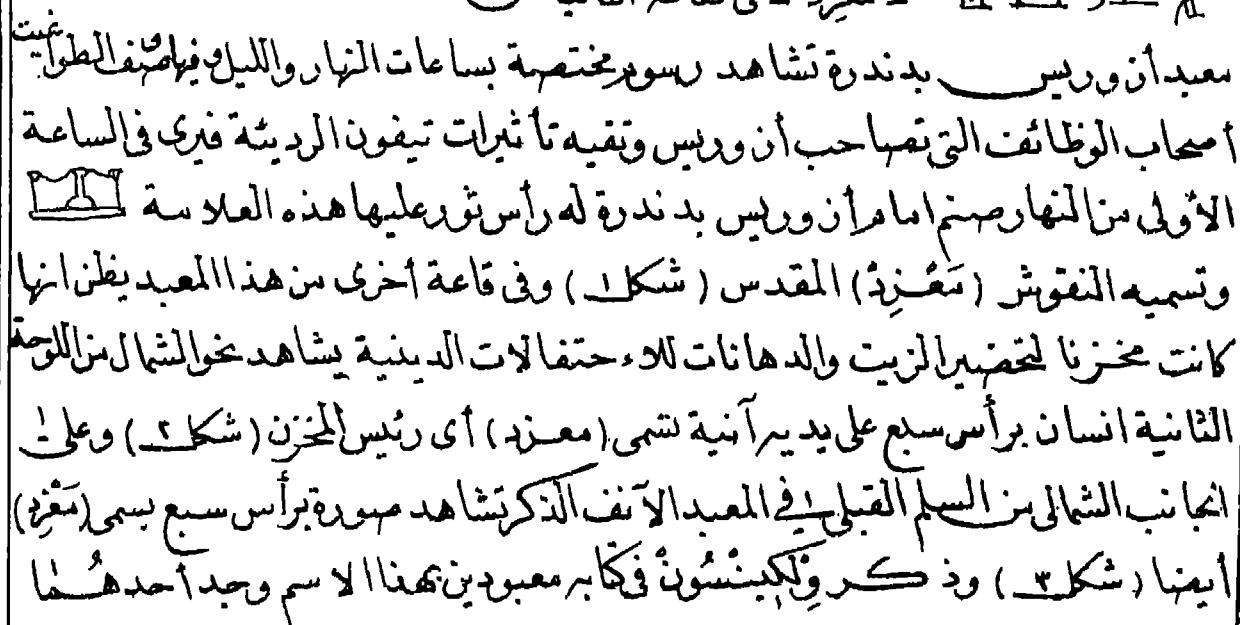 معبد أن وريس بدندرة تشاهد رسوم مختصة بساعات النهار والليل وفيها صنف الطواغيت
أصحاب الوظائف التى تصاحب أن وريس وتقيه تأثيرات تيفون الرديئة فيرى فى الساعة
الأولى من النهار صنم امام أن وريس بدندرة له رأس ثور عليها هذه العلامة
وتسميه النقوش (مَعْزِدْ) المقدس (شكل ١) وفى قاعة أخرى من هذا المعبد يظن انها
كانت مخزنا لتحضير الزيت والدهانات للاءحتفالات الدينية يشاهد نحو الشمال من اللوحة
الثانية انسان برأس سبع على يديه آنية تسمى (معزد) أى رئيس المخزن (شكل ٢) وعلى
الجانب الشمالى من السلم القبلى فى المعبد الآنف الذكر تشاهد صورة برأس سبع يسمى (مَعْزِد)
أيضا (شكل ٣) وذكر وِلْكِينْسُونْ فى كتابه معبودين بهذا الاسم وجد أحدهُما